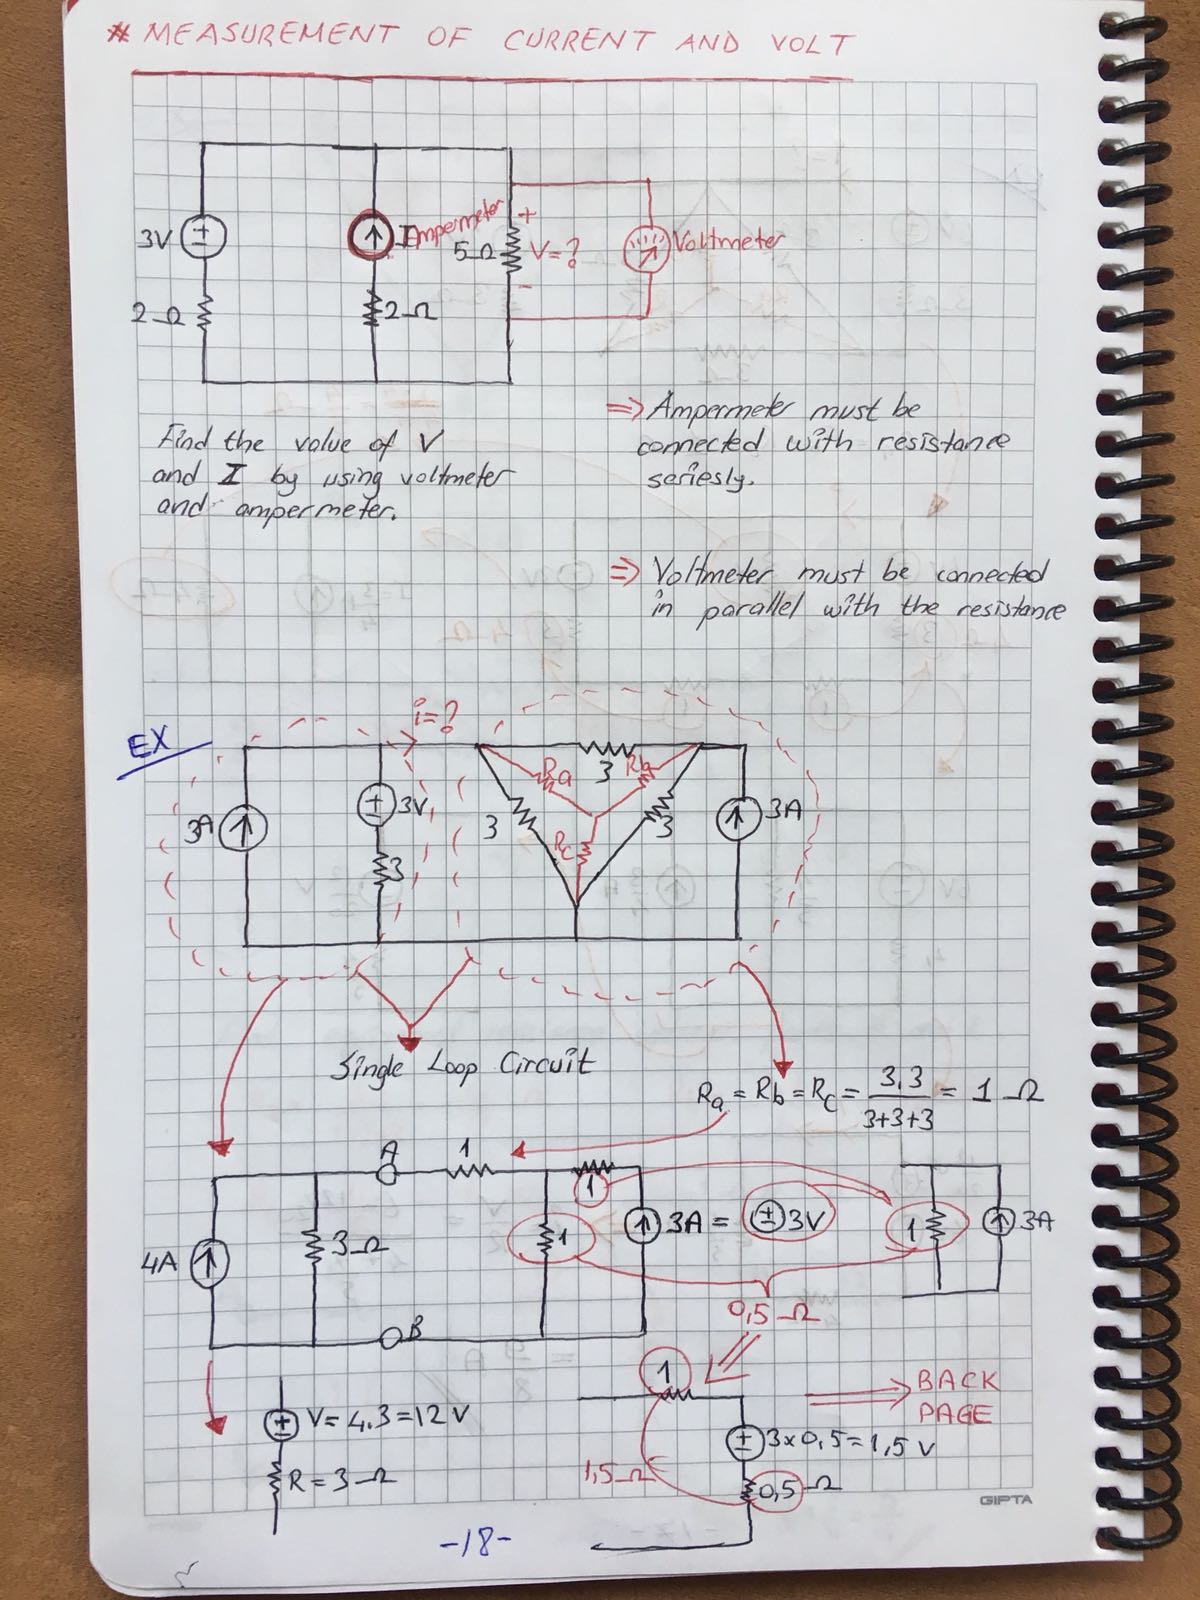 # MEASUREMENT OF CURRENT AND VOLT
3V
2Ω
I
Ampermeter
2Ω
5Ω
+
V=?
-
Voltmeter
Find the value of V
and I by using voltmeter
and ampermeter.
=> Ampermeter must be
connected with resistance
seriesly.
=> Voltmeter must be connected
in parallel with the resistance
EX
i=?
3A
3V
3
3
Ra
3
Rb
3
Rc
3A
Single Loop Circuit
Ra = Rb = Rc = 3.3 / 3+3+3 = 1 Ω
4A
3Ω
A
B
1
1
1
3A = 3V
1
3A
0,5 Ω
V = 4.3 = 12 V
R = 3 Ω
1
1,5Ω
3x0,5 = 1,5 V
0,5 Ω
BACK
PAGE
GIPTA
-18-